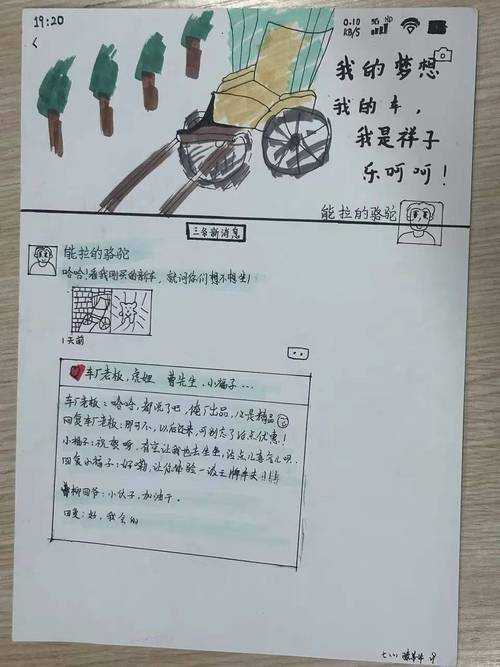 19:20
0.10 KB/S 5G HD
我的梦想
我的车，
我是祥子
乐呵呵！
能拉的骆驼
三条新消息
能拉的骆驼
哈哈！看我刚买的新车，就问你们想不想坐！
1天前
车厂老板，虎妞 曹先生，小福子…
车厂老板：哈哈，都说了吧，俺厂出品，必是精品
回复车厂老板：那可不，以后还来，可别忘了给点优惠！
小福子：祝贺呀，有空让我也去坐坐，沾点儿喜气儿呗
回复小福子：好嘞，让你体验一波王牌车夫
曹先生回节：小伙子，加油干。
回复：好，我会的